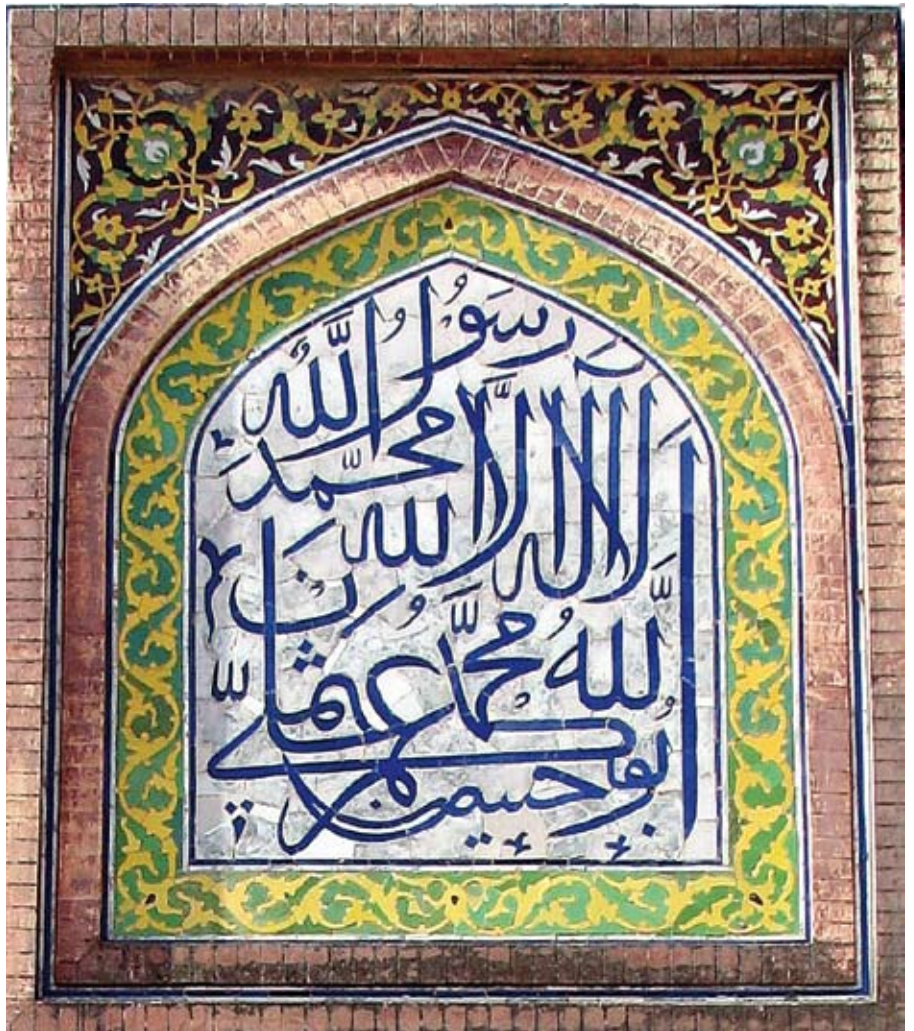 لا اله الا الله محمد رسول الله
الله محمد ابوبكر عمر عثمان علی